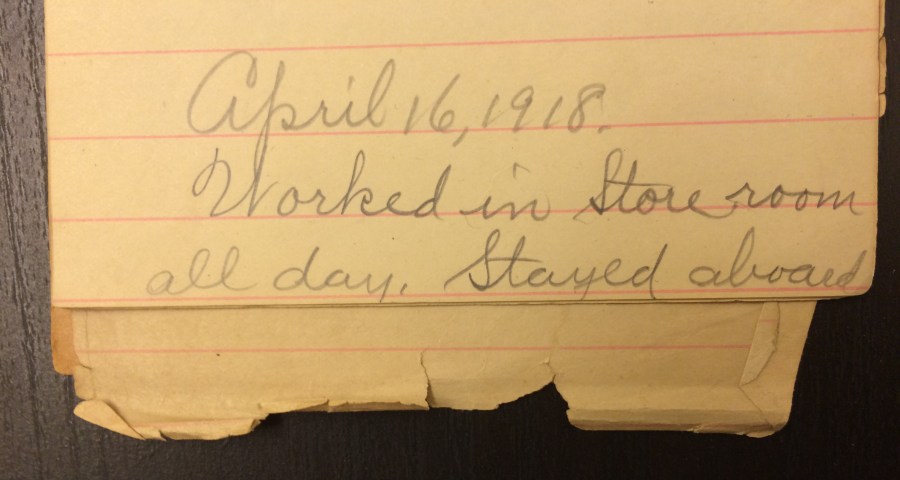 April 16, 1918.
Worked in Store room
all day. Stayed aboard